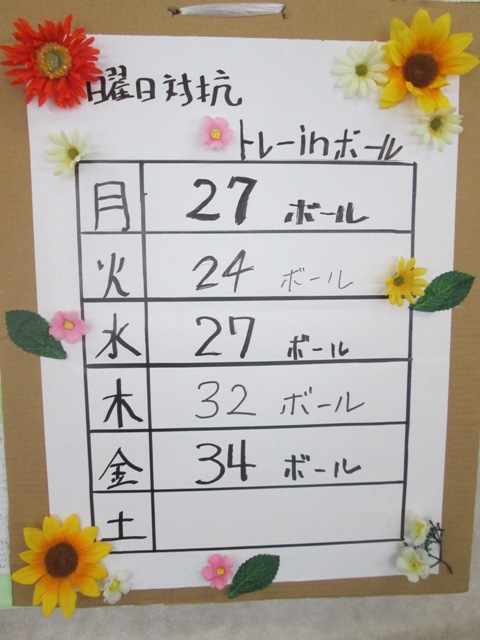 曜日対抗
トレーinボール
月 27 ボール
火 24 ボール
水 27 ボール
木 32 ボール
金 34 ボール
土